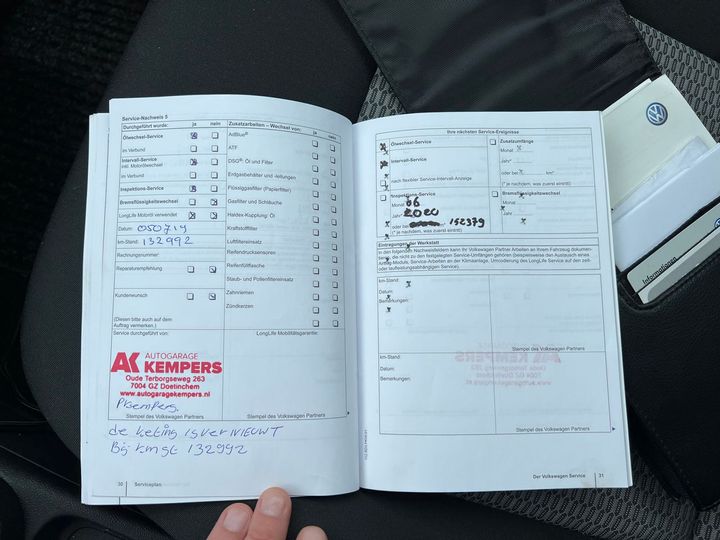 Service-Nachweis 5
Durchgeführt wurde: ja nein
Ölwechsel-Service
im Verbund
Intervall-Service
inkl. Motorölwechsel
im Verbund
Inspektions-Service
Bremsflüssigkeitswechsel
LongLife Motoröl verwendet
Datum: 050719
km-Stand: 132992
Rechnungsnummer:
Reparaturempfehlung
Kundenwunsch
(Diesen bitte auch auf dem
Auftrag vermerken.)
Service durchgeführt von:
AK AUTOGARAGE
KEMPERS
Oude Terborgseweg 263
7004 GZ Doetinchem
www.autogaragekempers.nl
PKempers.
Stempel des Volkswagen Partners
Zusatzarbeiten – Wechsel von: ja nein
AdBlue®
ATF
DSG®: Öl und Filter
Erdgasbehälter und -leitungen
Flüssiggasfilter (Papierfilter)
Gasfilter und Schläuche
Haldex-Kupplung: Öl
Kraftstofffilter
Luftfiltereinsatz
Reifendrucksensoren
Reifenfüllflasche
Staub- und Pollenfiltereinsatz
Zahnriemen
Zündkerzen
LongLife Mobilitätsgarantie:
Stempel des Volkswagen Partners
de keting is verNIEUWT
Bij kmst 132992
30 Serviceplan
Ihre nächsten Service-Ereignisse
Ölwechsel-Service
Intervall-Service
nach flexibler Service-Intervall-Anzeige
Inspektions-Service
Monat 06
Jahr* 2020
oder bei 152979
(* je nachdem, was zuerst eintritt)
Zusatzumfänge
Monat
Jahr*
oder bei km*
(* je nachdem, was zuerst eintritt)
Bremsflüssigkeitswechsel
Monat
Jahr
Eintragungen der Werkstatt
In den folgenden Nachweisfeldern kann Ihr Volkswagen Partner Arbeiten an Ihrem Fahrzeug dokumen-
tieren, die nicht zu den festgelegten Service-Umfängen gehören (beispielsweise den Austausch eines
Airbag-Moduls, Service-Arbeiten an der Klimaanlage, Umcodierung des LongLife Service auf den zeit-
oder laufleistungsabhängigen Service).
km-Stand:
Datum:
Bemerkungen:
Stempel des Volkswagen Partners
km-Stand:
Datum:
Bemerkungen:
Stempel des Volkswagen Partners
Der Volkswagen Service 31
Informationen